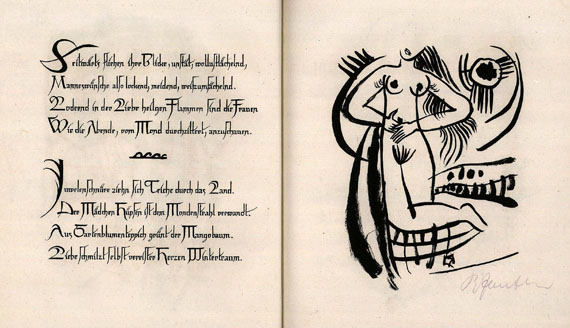 Seitwärts fliehen ihre Glieder, unstät, wollustscheinend,
Manneswünsche also lockend, meidend, weltumscheinend.
Lodernd in der Liebe heilgen Flammen sind die Frauen
Wie die Abende, vom Mond durchzittert, anzuschauen.
Juwelenschnüre ziehn sich Teiche durch das Land.
Der Mädchen Hüpfen ist dem Mondenstrahl verwandt.
Aus Gartenblumenteppich grünt der Mangobaum.
Liebe schmilzt selbst vereister Herzen Wintertraum.